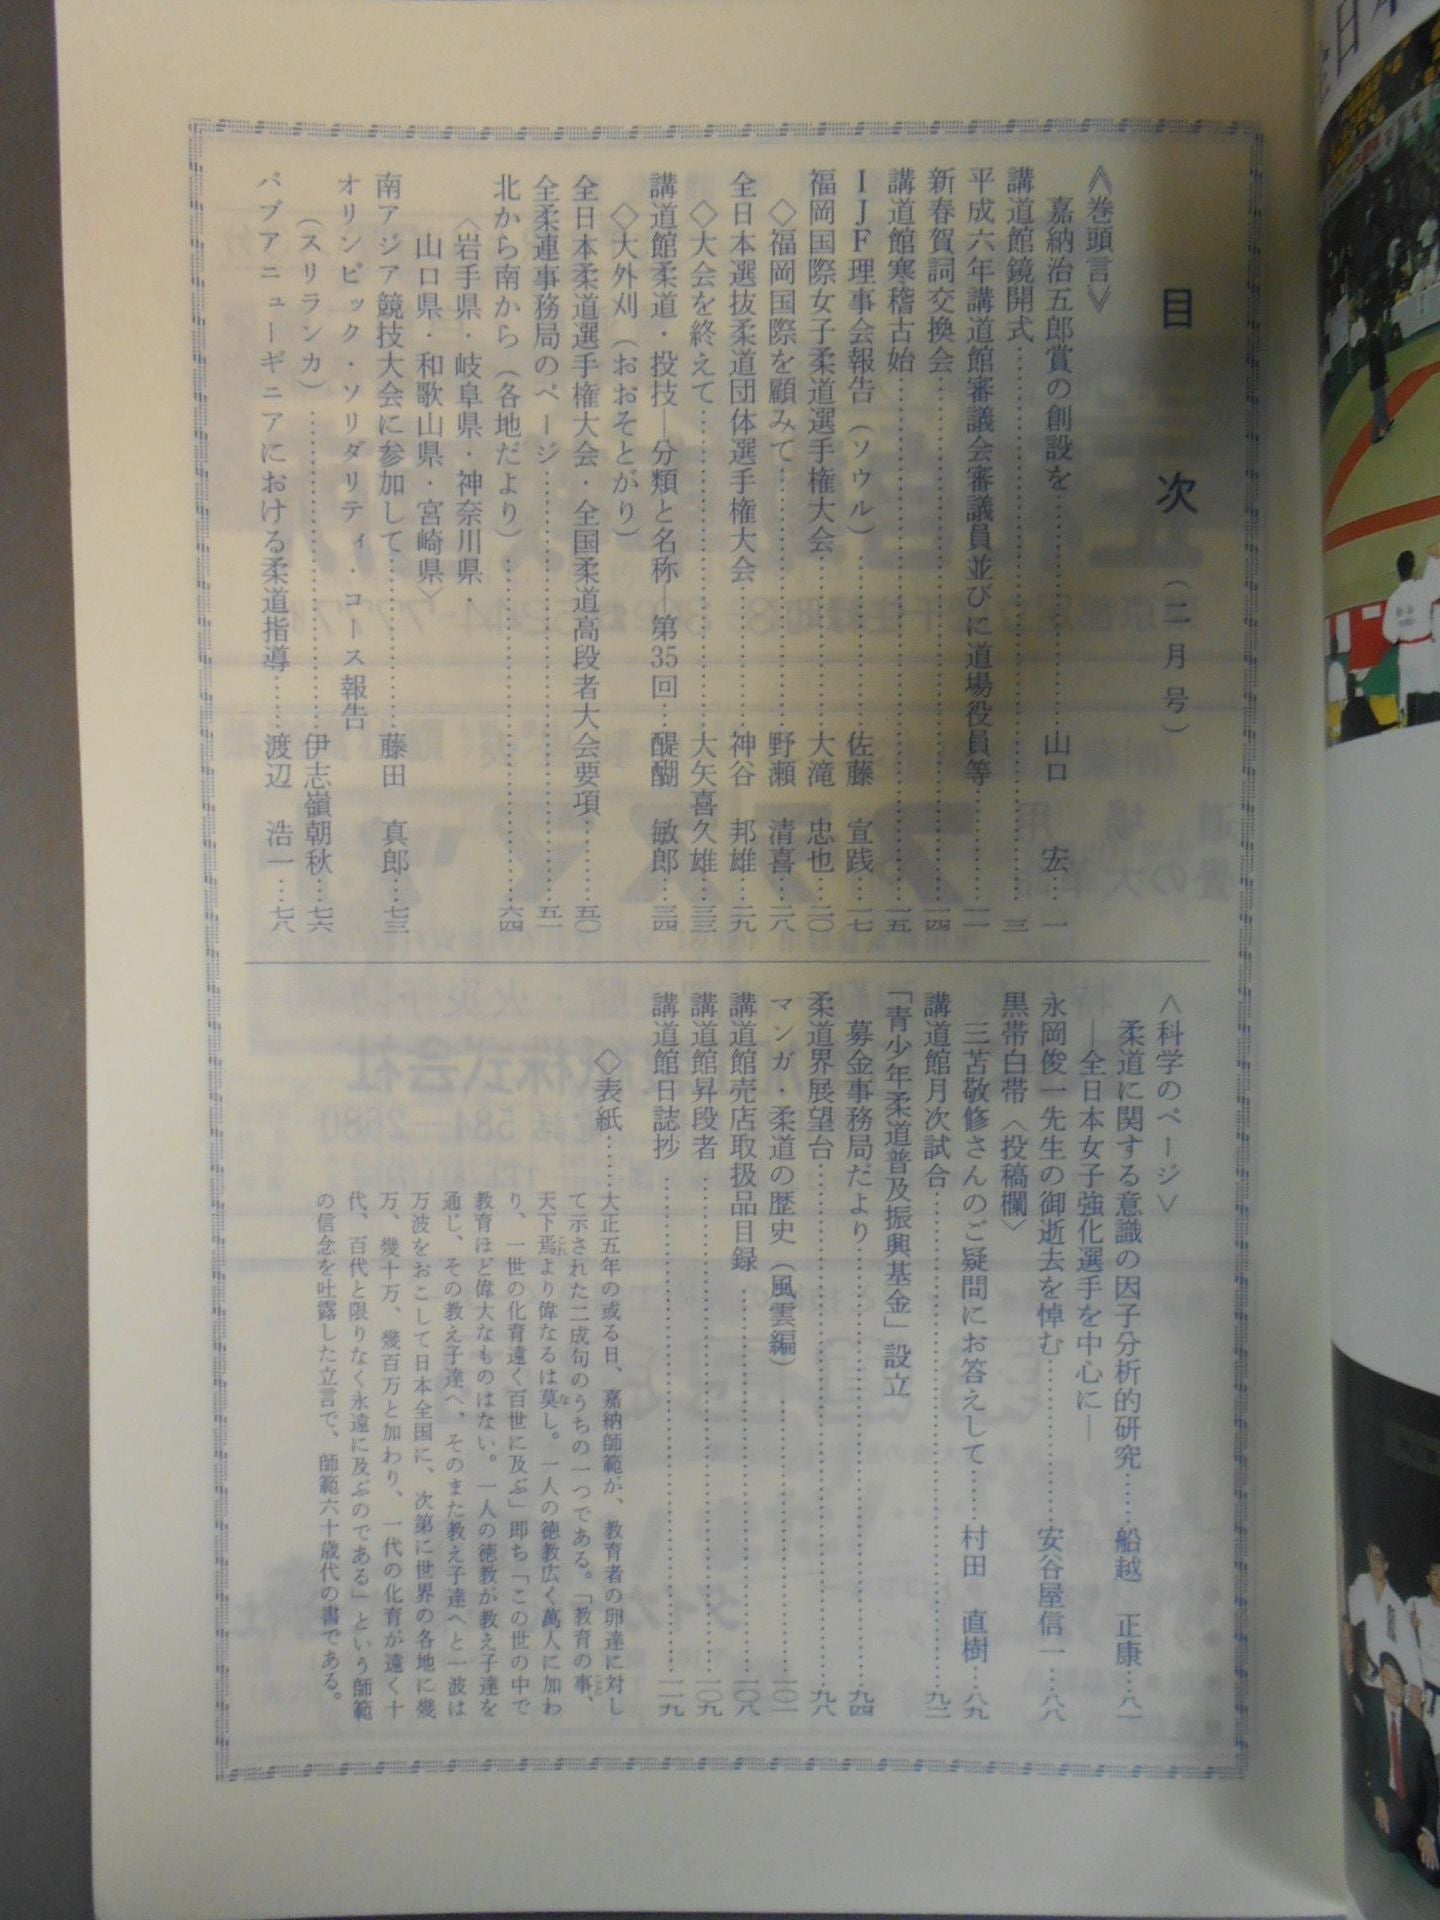 目次（二月号）
《巻頭言》
嘉納治五郎賞の創設を……………山口　宏…一
講道館鏡開式……………三
平成六年講道館審議会審議員並びに道場役員等……一一
新春賀詞交換会……………一四
講道館寒稽古始……………一五
ＩＪＦ理事会報告（ソウル）……………佐藤　宣践…一七
福岡国際女子柔道選手権大会……………大滝　忠也…二〇
◇福岡国際を顧みて……………野瀬　清喜…二八
全日本選抜柔道団体選手権大会……………神谷　邦雄…二九
◇大会を終えて……………大矢喜久雄…三三
講道館柔道・投技―分類と名称―第35回…醍醐　敏郎…三四
◇大外刈（おおそとがり）
全日本柔道選手権大会・全国柔道高段者大会要項……五〇
全柔連事務局のページ……………五一
北から南から（各地だより）……………六四
〈岩手県・岐阜県・神奈川県・
山口県・和歌山県・宮崎県〉
南アジア競技大会に参加して……………藤田　真郎…七三
オリンピック・ソリダリティ・コース報告
（スリランカ）……………伊志嶺朝秋…七六
パプアニューギニアにおける柔道指導……渡辺　浩一…七八
＜科学のページ＞
柔道に関する意識の因子分析的研究……船越　正康…八一
―全日本女子強化選手を中心に―
永岡俊一先生の御逝去を悼む……………安谷屋信一…八八
黒帯白帯〈投稿欄〉
三苫敬修さんのご疑問にお答えして……村田　直樹…八九
講道館月次試合……………九二
「青少年柔道普及振興基金」設立
募金事務局だより……………九四
柔道界展望台……………九八
マンガ・柔道の歴史（風雲編）……………一〇一
講道館売店取扱品目録……………一〇八
講道館昇段者……………一〇九
講道館日誌抄……………一一九
◇表紙……大正五年の或る日、嘉納師範が、教育者の卵達に対し
て示された二成句のうちの一つである。「教育の事、
天下焉より偉なるは莫し。一人の徳教広く萬人に加わ
り、一世の化育遠く百世に及ぶ」即ち「この世の中で
教育ほど偉大なものはない。一人の徳教が教え子達を
通じ、その教え子達へ、そのまた教え子達へと一波は
万波をおこして日本全国に、次第に世界の各地に幾
万、幾十万、幾百万と加わり、一代の化育が遠く十
代、百代と限りなく永遠に及ぶのである」という師範
の信念を吐露した立言で、師範六十歳代の書である。